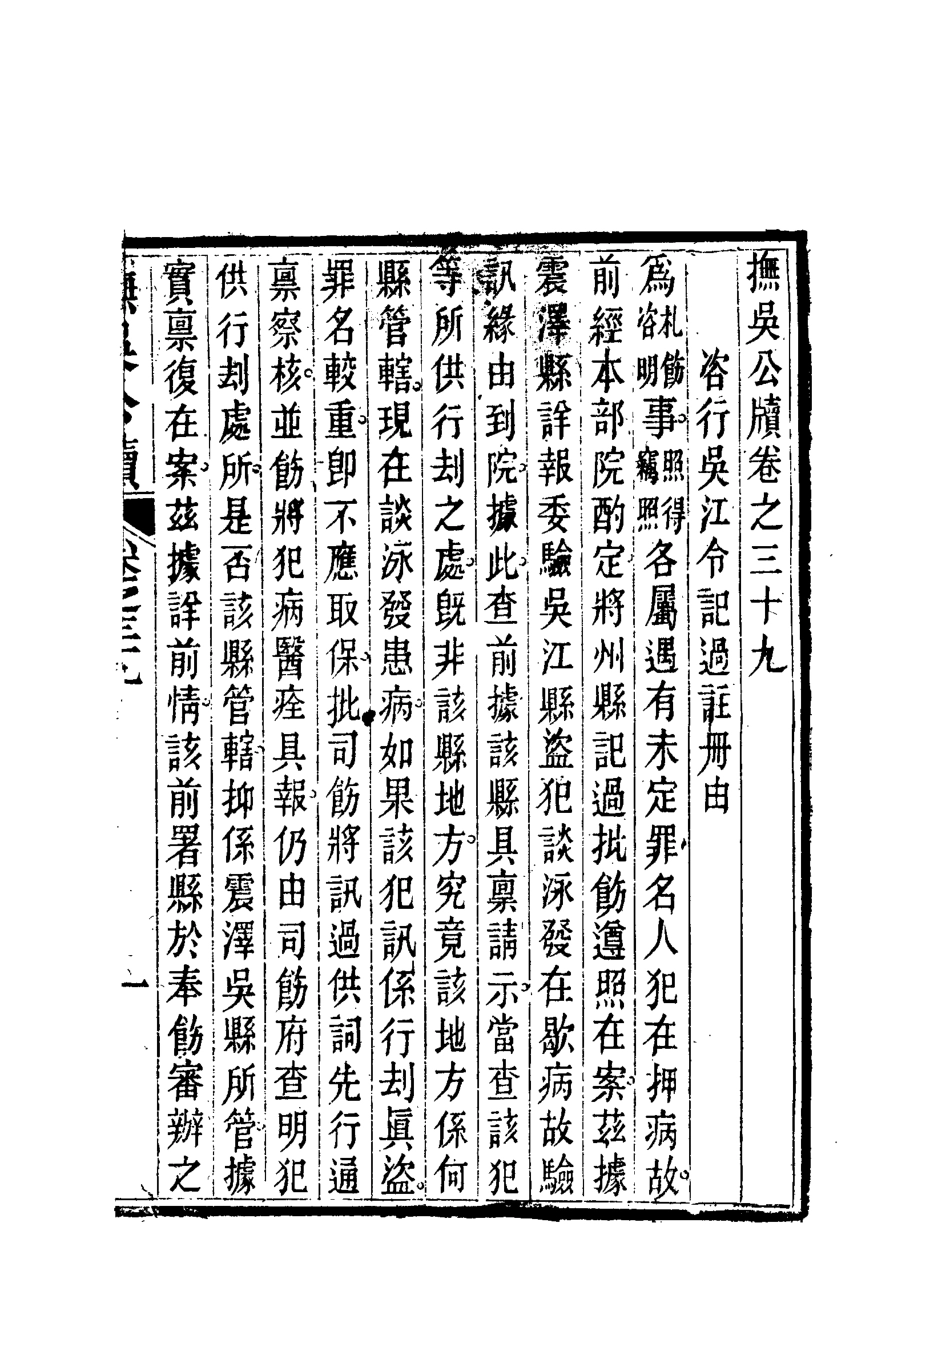 撫吳公牘卷之三十九
咨行吳江令記過註册由
爲札飭咨明事。照得竊照各屬遇有未定罪名人犯在押病故。
前經本部院酌定將州縣記過批飭遵照在案。茲據
震澤縣詳報委驗吳江縣盜犯談泳發在歇病故驗
訊緣由到院。據此。查前據該縣具禀請示。當查該犯
等所供行刦之處。旣非該縣地方。究竟該地方係何
縣管轄。現在談泳發患病。如果該犯訊係行刦眞盜。
罪名較重。卽不應取保。批司飭將訊過供詞先行通
禀察核。並飭將犯病醫痊具報。仍由司飭府查明犯
供行刦處所。是否該縣管轄。抑係震澤吳縣所管。據
實禀復在案。茲據詳前情。該前署縣於奉飭審辦之
撫吳公牘 卷之三十九 一